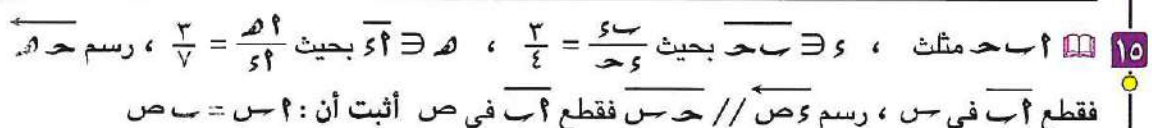 ١٥ أ ب ح مثلث ، ء ∈ ب ح بحيث ب ء / ء ح = ٣ / ٤ ، هـ ∈ أ ء بحيث أ هـ / أ ء = ٣ / ٧ ، رسم ح هـ
فقطع أ ب فى س ، رسم ء ص // ح س فقطع أ ب فى ص أثبت أن : أ س = ب ص